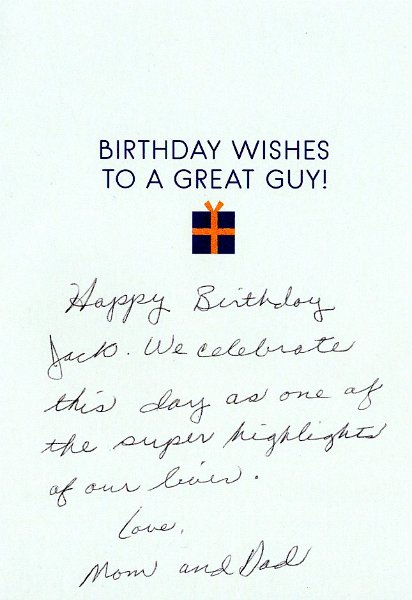 BIRTHDAY WISHES
TO A GREAT GUY!
Happy Birthday
Jack. We celebrate
this day as one of
the super highlights
of our lives.
Love,
Mom and Dad